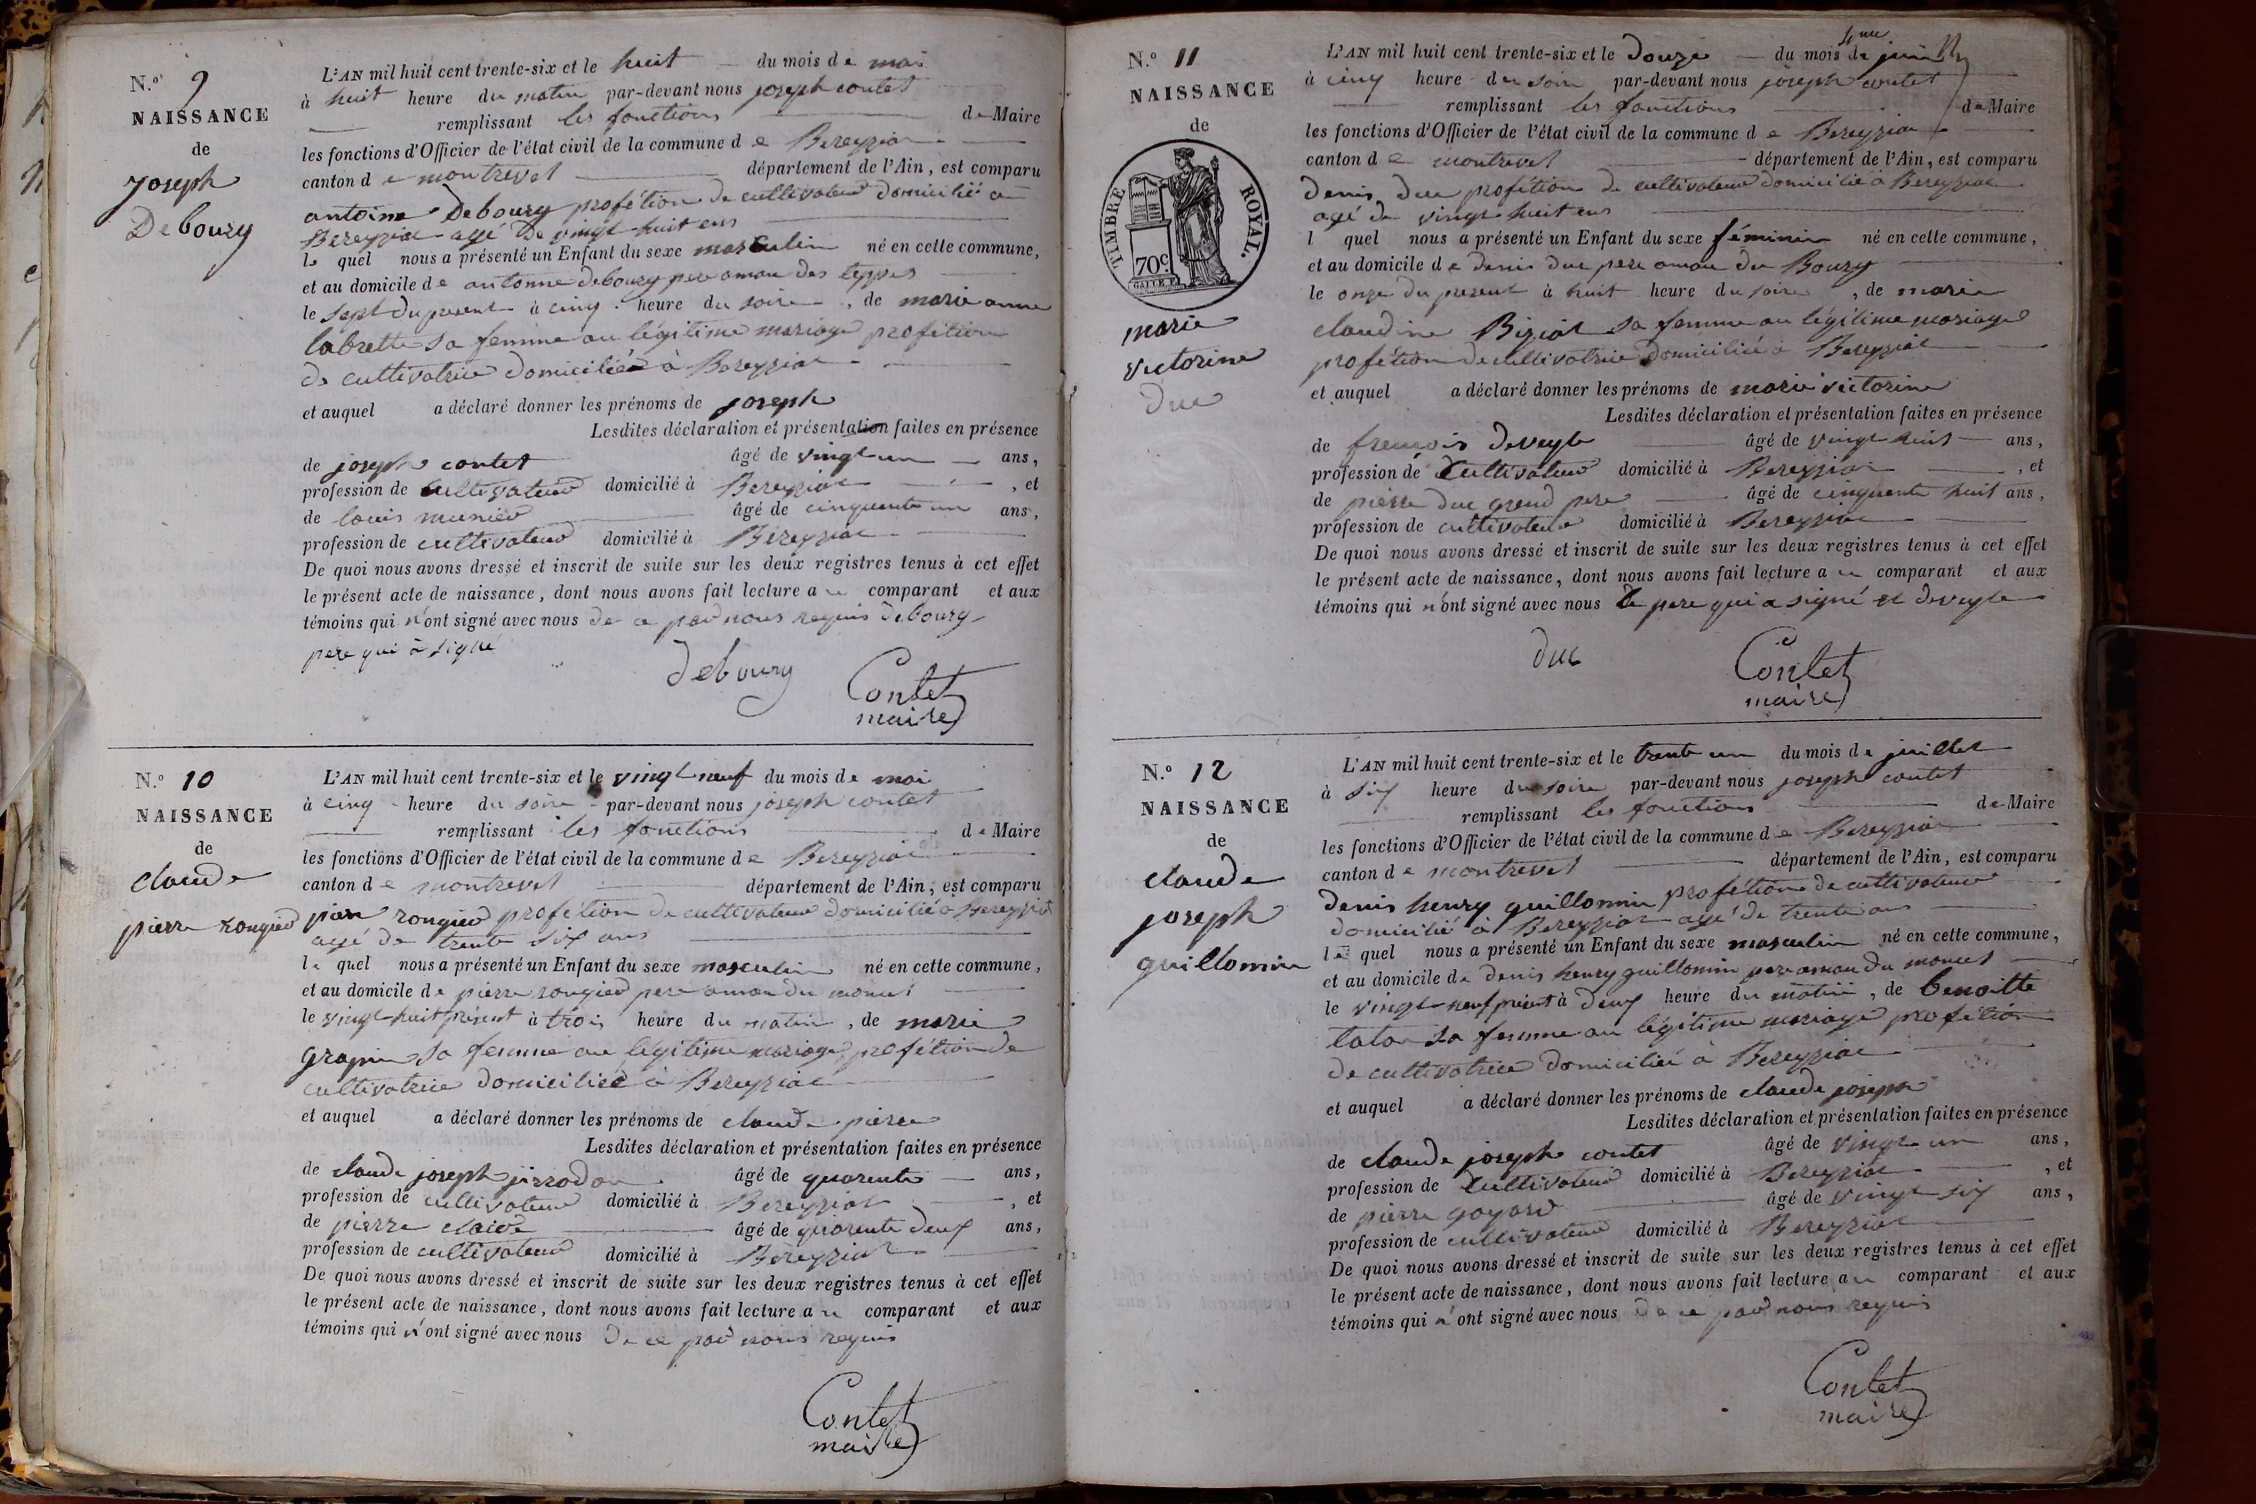 N.º 9
NAISSANCE
de
joseph
Deboury
L'AN mil huit cent trente-six et le huit du mois de mai
à huit heure du matin par-devant nous joseph contet
remplissant les fonctions de Maire
les fonctions d'Officier de l'état civil de la commune de Bereyziat
canton de montrevel département de l'Ain, est comparu
antoine Deboury profétion de cultivateur domicilié à
Bereyziat agé de vingt huit ens
le quel nous a présenté un Enfant du sexe masculin né en cette commune,
et au domicile de antonne deboury pere amau des teppes
le sept du present à cinq heure du soire, de marie anne
labrette sa femme au légitime mariage profétion
de cultivatrice domiciliée à Bereyziat
et auquel a déclaré donner les prénoms de joseph
Lesdites déclaration et présentation faites en présence
de joseph contet âgé de vingt un ans,
profession de cultivateur domicilié à Bereyziat, et
de louis munier âgé de cinquante un ans,
profession de cultivateur domicilié à Bereyziat
De quoi nous avons dressé et inscrit de suite sur les deux registres tenus à cet effet
le présent acte de naissance, dont nous avons fait lecture au comparant et aux
témoins qui n'ont signé avec nous de ce par nous requis deboury
pere qui à signé
deboury
Contet
maire
N.º 10
NAISSANCE
de
claude
pierre rougier
L'AN mil huit cent trente-six et le vingt neuf du mois de mai
à cinq heure du soire par-devant nous joseph contet
remplissant les fonctions de Maire
les fonctions d'Officier de l'état civil de la commune de Bereyziat
canton de montrevel département de l'Ain, est comparu
pierre rougier profétion de cultivateur domicilié à Bereyziat
agé de trente six ans
le quel nous a présenté un Enfant du sexe masculin né en cette commune,
et au domicile de pierre rougier pere amau du monet
le vingt huit présent à trois heure du matin, de marie
grapin sa femme au légitime mariage profétion de
cultivatrice domiciliée à Bereyziat
et auquel a déclaré donner les prénoms de claude pierre
Lesdites déclaration et présentation faites en présence
de claude joseph pirrodon âgé de quarente ans,
profession de cultivateur domicilié à Bereyziat, et
de pierre âgé de quarente deux ans,
profession de cultivateur domicilié à Bereyziat
De quoi nous avons dressé et inscrit de suite sur les deux registres tenus à cet effet
le présent acte de naissance, dont nous avons fait lecture au comparant et aux
témoins qui n'ont signé avec nous de ce par nous requis
Contet
maire
N.º 11
NAISSANCE
de
TIMBRE ROYAL.
70c.
marie
victorine
duc
L'AN mil huit cent trente-six et le douze du mois de juin
à cinq heure du soire par-devant nous joseph contet
remplissant les fonctions de Maire
les fonctions d'Officier de l'état civil de la commune de Bereyziat
canton de montrevel département de l'Ain, est comparu
denis duc profétion de cultivateur domicilié à Bereyziat
agé de vingt huit ens
l quel nous a présenté un Enfant du sexe féminin né en cette commune,
et au domicile de denis duc pere amau du Boury
le onze du present à huit heure du soire, de marie
claudine Biziat sa femme au légitime mariage
profétion de cultivatrice domiciliée à Bereyziat
et auquel a déclaré donner les prénoms de marie victorine
Lesdites déclaration et présentation faites en présence
de frençois deveyle âgé de vingt huit ans,
profession de cultivateur domicilié à Bereyziat, et
de pierre duc grend pere âgé de cinquente huit ans,
profession de cultivateur domicilié à Bereyziat
De quoi nous avons dressé et inscrit de suite sur les deux registres tenus à cet effet
le présent acte de naissance, dont nous avons fait lecture au comparant et aux
témoins qui n'ont signé avec nous le pere qui a signé et deveyle
duc
Contet
maire
N.º 12
NAISSANCE
de
claude
joseph
guillomin
L'AN mil huit cent trente-six et le trente un du mois de juillet
à six heure du soire par-devant nous joseph contet
remplissant les fonctions de Maire
les fonctions d'Officier de l'état civil de la commune de Bereyziat
canton de montrevel département de l'Ain, est comparu
denis henry guillomin profétion de cultivateur
domicilié à Bereyziat agé de trente ans
le quel nous a présenté un Enfant du sexe masculin né en cette commune,
et au domicile de denis henry guillomin pere amau du monet
le vingt neuf présent à deux heure du matin, de benoitte
taton sa femme au légitime mariage profétion
de cultivatrice domiciliée à Bereyziat
et auquel a déclaré donner les prénoms de claude joseph
Lesdites déclaration et présentation faites en présence
de claude joseph contet âgé de vingt un ans,
profession de cultivateur domicilié à Bereyziat, et
de pierre goyard âgé de vingt six ans,
profession de cultivateur domicilié à Bereyziat
De quoi nous avons dressé et inscrit de suite sur les deux registres tenus à cet effet
le présent acte de naissance, dont nous avons fait lecture au comparant et aux
témoins qui n'ont signé avec nous de ce par nous requis
Contet
maire